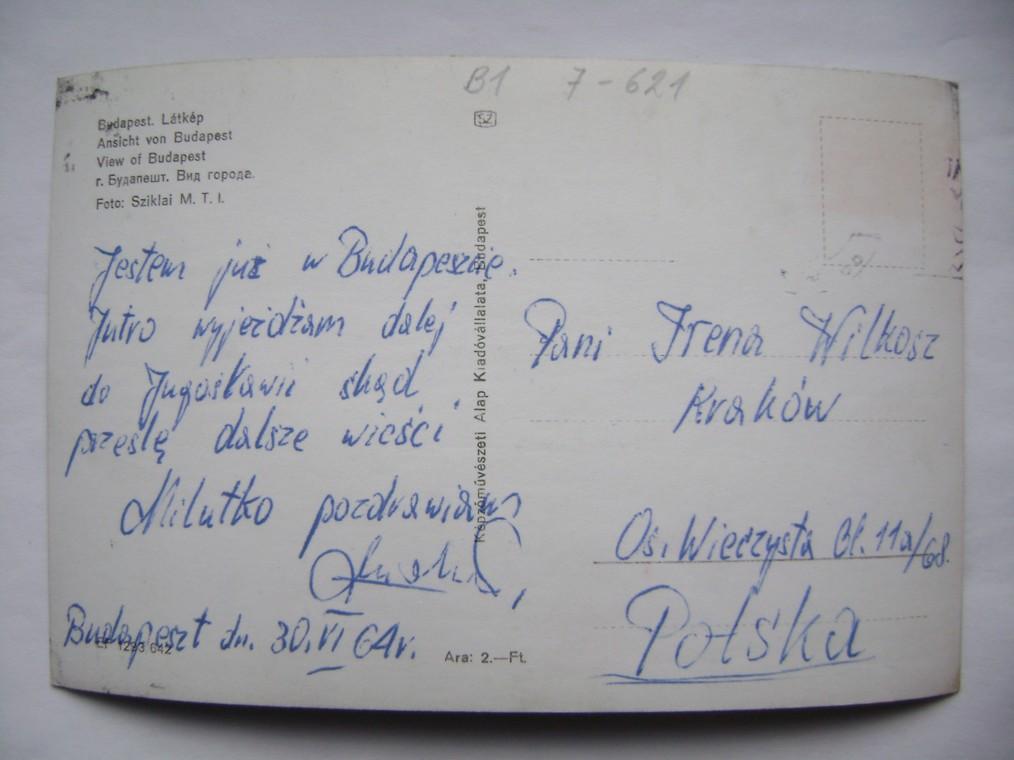 B1 7-621
Budapest. Látkép
Ansicht von Budapest
View of Budapest
г. Будапешт. Вид города.
Foto: Sziklai M. T. I.
Jestem już w Budapeszcie.
Jutro wyjeżdżam dalej
do Jugosławii skąd
prześlę dalsze wieści.
Milutko pozdrawiam
Budapest dn. 30.VI 64r.
EF 1223 642
Ara: 2.—Ft.
Képzőművészeti Alap Kiadóvállalata, Budapest
Pani Irena Wilkosz
Kraków
Oś. Wieczysta Bl. 11a/68.
Polska